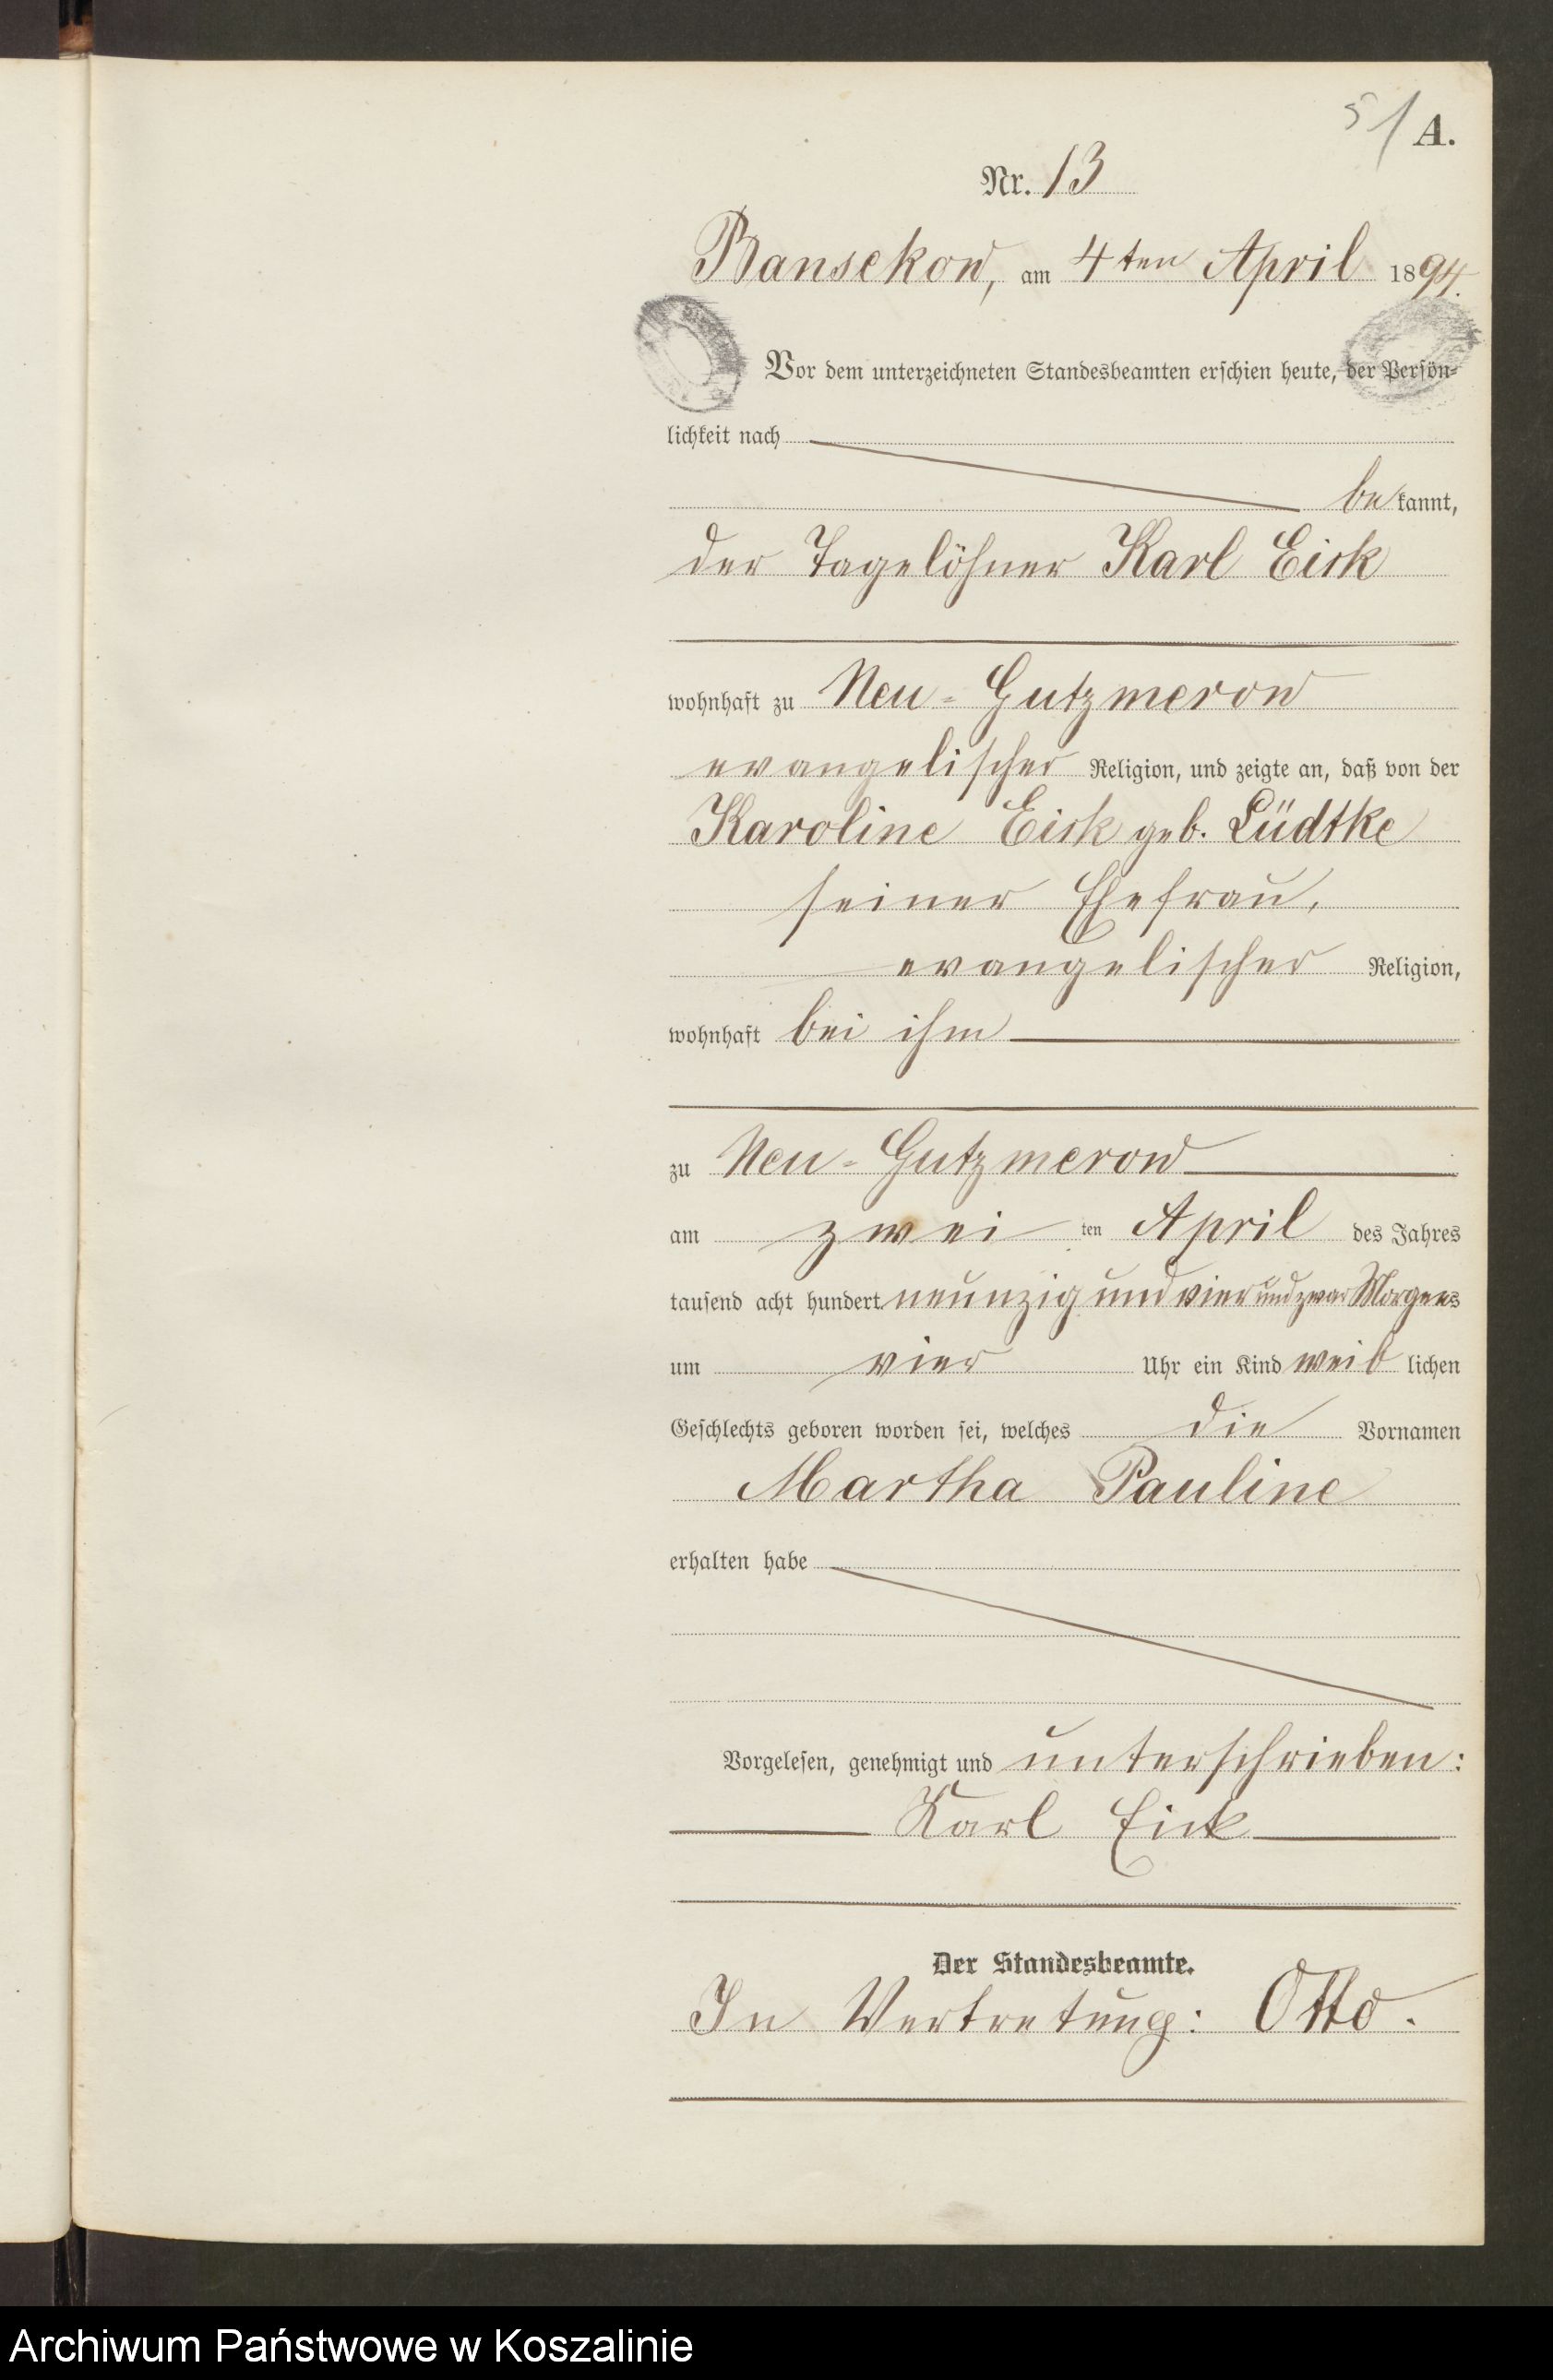 5/ A.
Nr. 13
Bansekow, am 4ten April 1894.
Vor dem unterzeichneten Standesbeamten erschien heute, der Persön-
lichkeit nach
be kannt,
der Tagelöhner Karl Eick
wohnhaft zu Neu-Gutzmerow
evangelischer Religion, und zeigte an, daß von der
Karoline Eick geb. Lüdtke
seiner Ehefrau,
evangelischer Religion,
wohnhaft bei ihm
zu Neu-Gutzmerow
am zwei ten April des Jahres
tausend acht hundert neunzig und vier und zwar Morgens
um vier Uhr ein Kind weib lichen
Geschlechts geboren worden sei, welches die Vornamen
Martha Pauline
erhalten habe
Vorgelesen, genehmigt und unterschrieben:
Karl Eick
Der Standesbeamte.
In Vertretung: Otto.
Archiwum Państwowe w Koszalinie